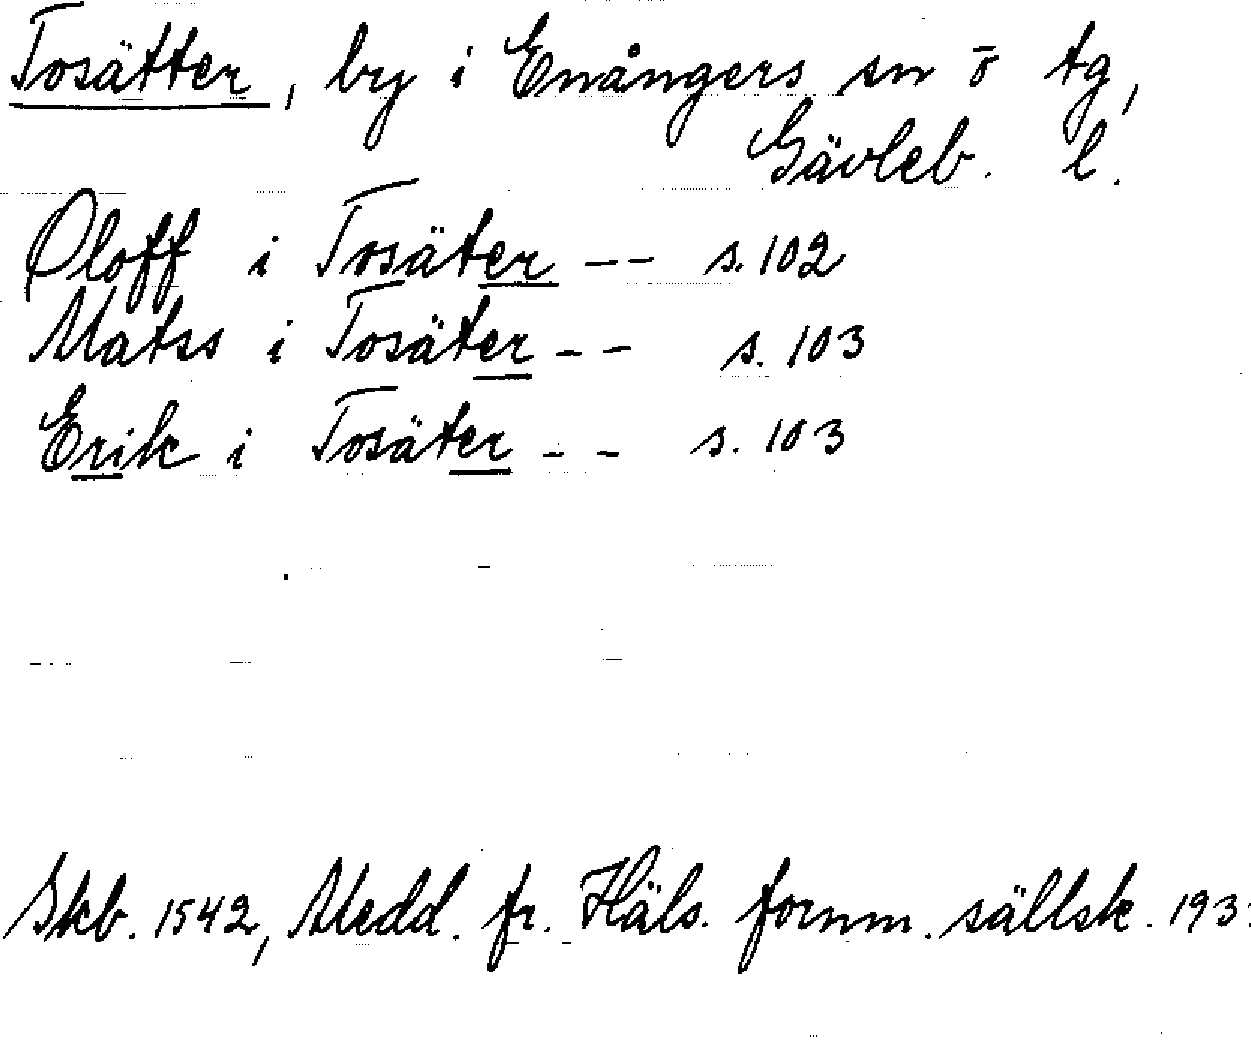 Tosätter, by i Enångers sn ö tg,
Gävleb. l.
Oloff i Tosäter -- s. 102
Matss i Tosäter -- s. 103
Erik i Tosäter -- s. 103
Skb. 1542, Medd. fr. Häls. fornm. sällsk. 193